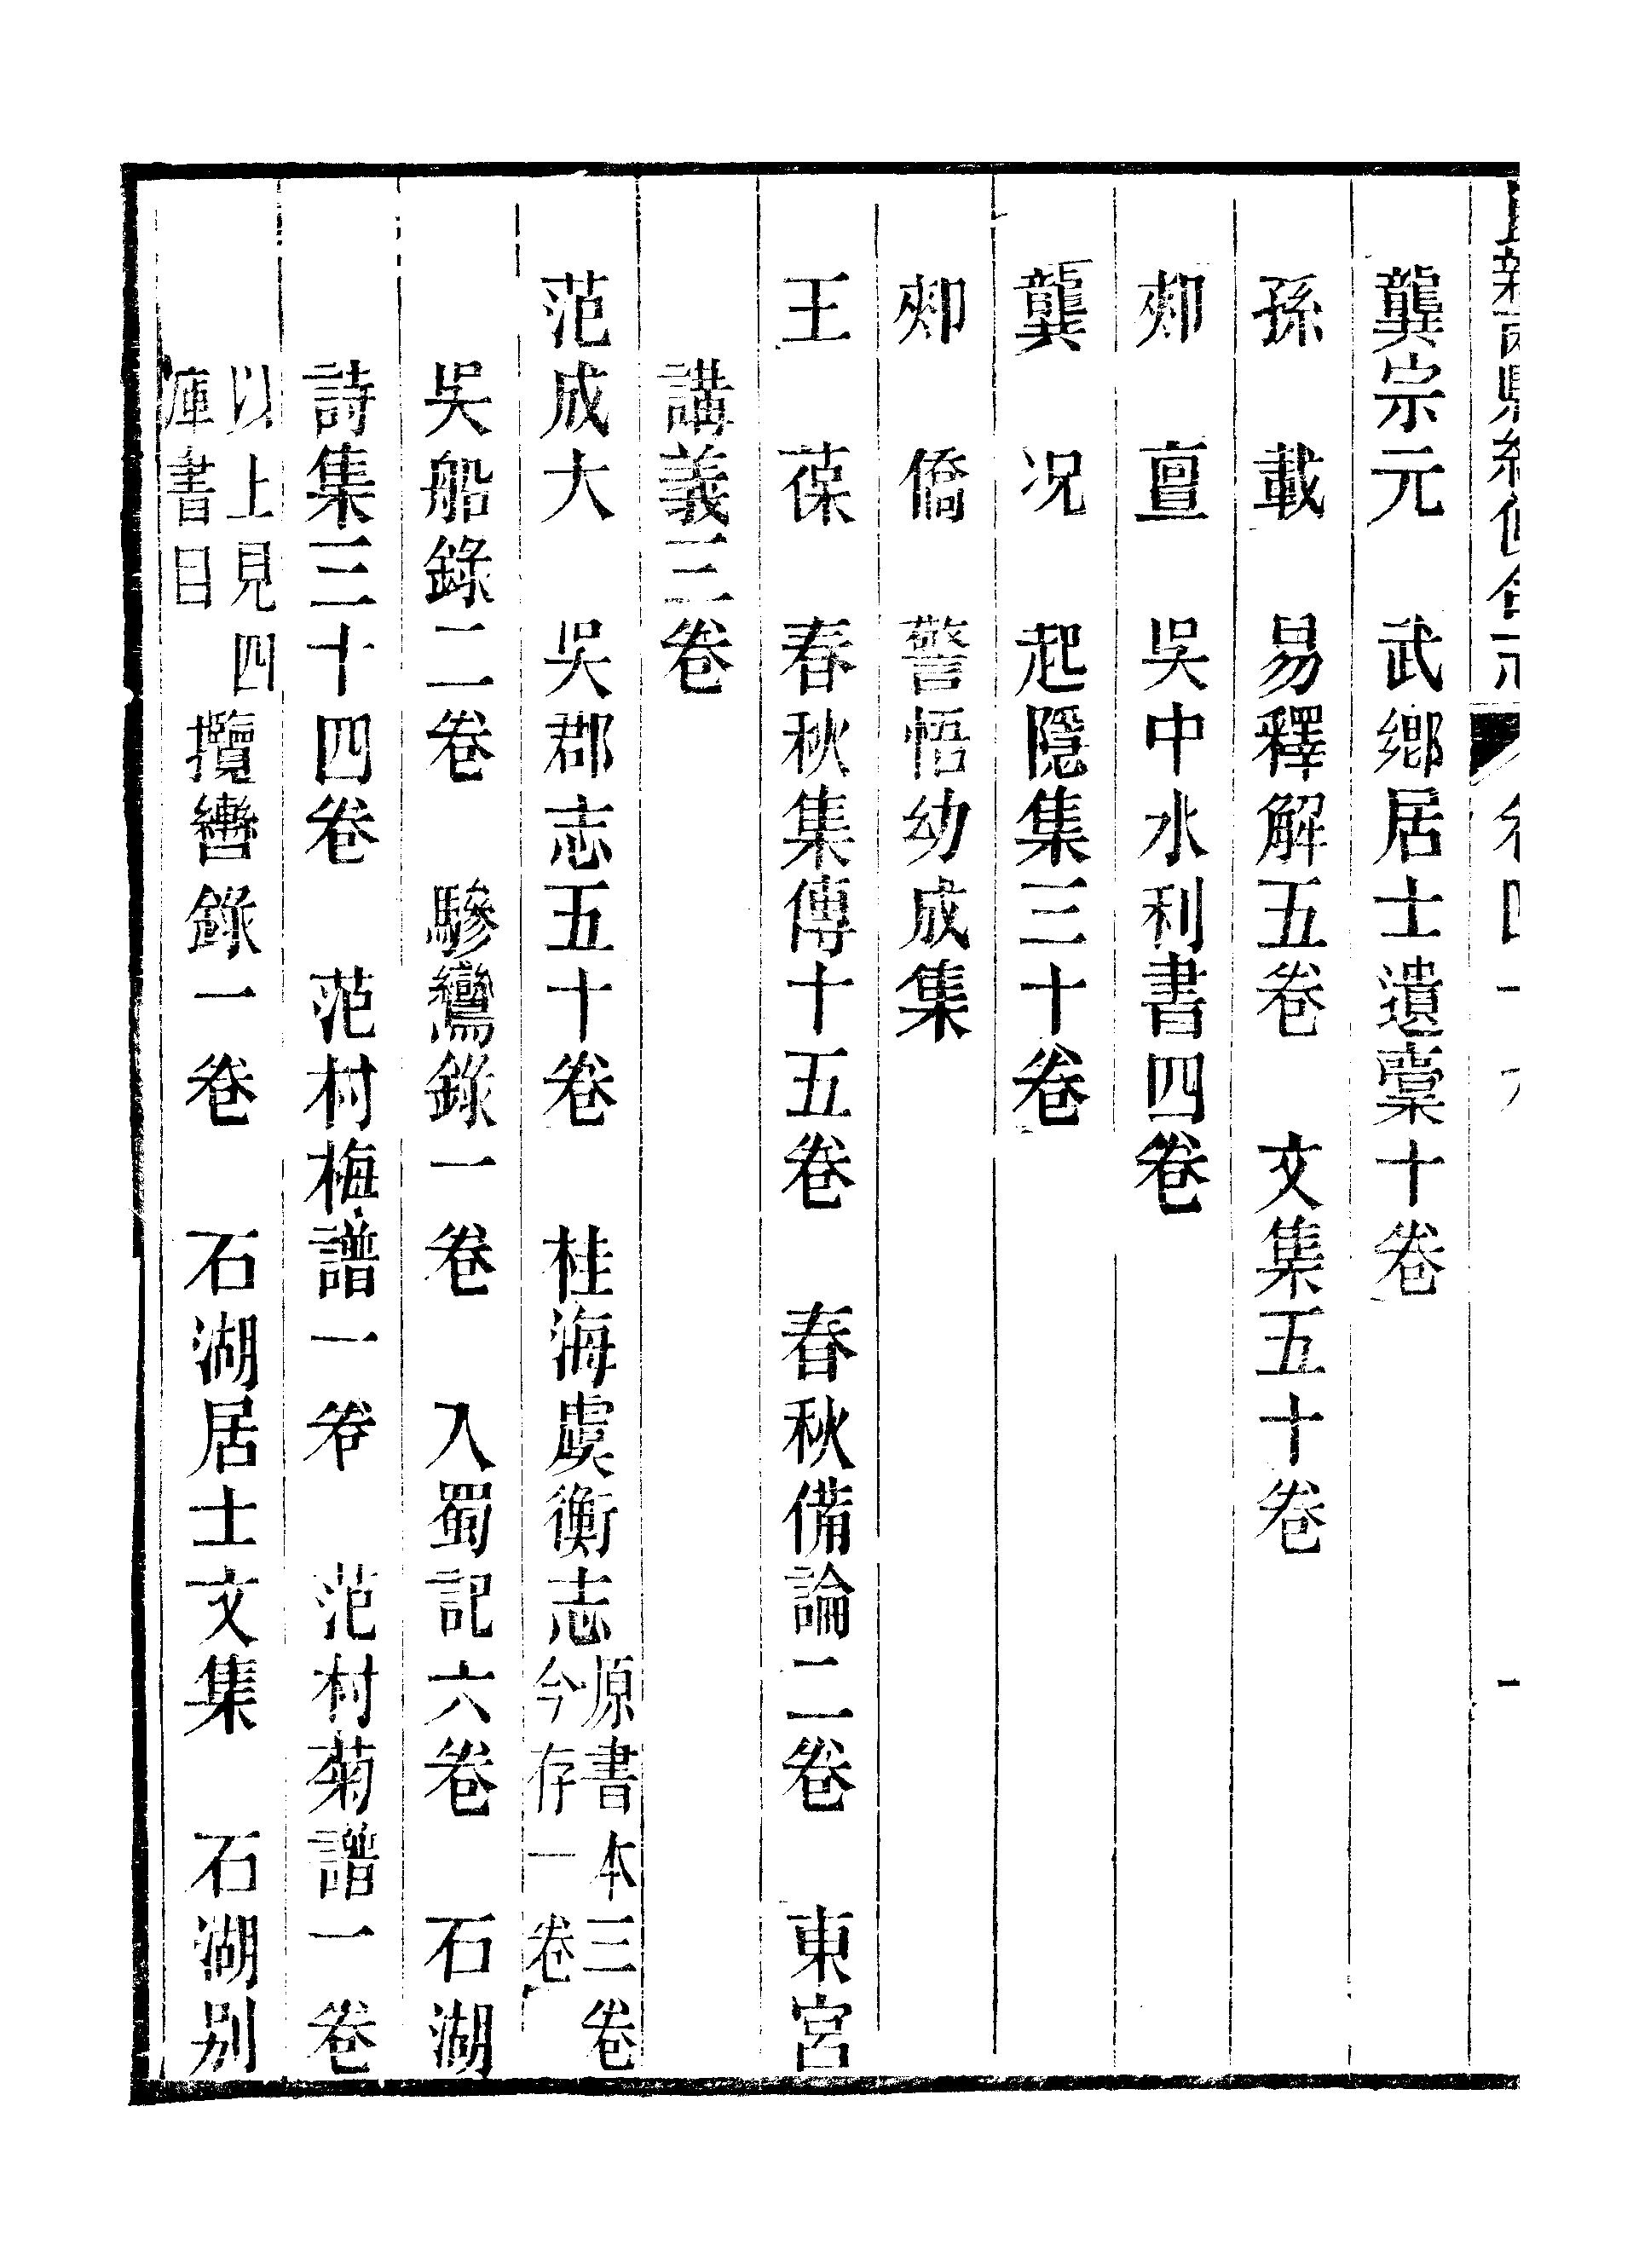 龔宗元　武鄉居士遺稾十卷
孫　載　易釋解五卷　文集五十卷
郟　亶　吳中水利書四卷
龔　况　起隱集三十卷
郟　僑　警悟幼成集
王　葆　春秋集傳十五卷　春秋備論二卷　東宮
講義三卷
范成大　吳郡志五十卷　桂海虞衡志原書本三卷今存一卷
吳船錄二卷　驂鸞錄一卷　入蜀記六卷　石湖
詩集三十四卷　范村梅譜一卷　范村菊譜一卷
以上見四庫書目　攬轡錄一卷　石湖居士文集　石湖别